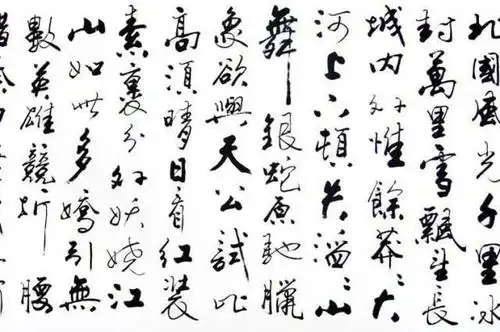 北國風光千里冰
封萬里雪飄望長
城内外惟餘莽〻大
河上下頓失滔〻山
舞銀蛇原馳臘
象欲與天公試比
高須晴日看紅装
素裹分外妖嬈江
山如此多嬌引無
數英雄競折腰
惜秦